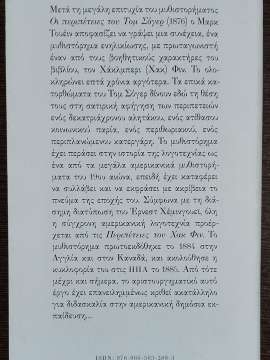 Μετά τη μεγάλη επιτυχία του μυθιστορήματος
Οι περιπέτειες του Τομ Σόγερ (1876) ο Μαρκ
Τουέιν αποφασίζει να γράψει μια συνέχεια, ένα
μυθιστόρημα ενηλικίωσης, με πρωταγωνιστή
έναν από τους βοηθητικούς χαρακτήρες του
βιβλίου, τον Χάκλμπερι (Χακ) Φιν. Το ολο-
κληρώνει επτά χρόνια αργότερα. Τα επικά κα-
τορθώματα του Τομ Σόγερ δίνουν εδώ τη θέση
τους στη σατιρική αφήγηση των περιπετειών
ενός δεκατριάχρονου αλητάκου, ενός ατίθασου
κοινωνικού παρία, ενός περιθωριακού, ενός
περιπλανώμενου κατεργάρη. Το μυθιστόρημα
έχει περάσει στην ιστορία της λογοτεχνίας ως
ένα από τα μεγάλα αμερικανικά μυθιστορή-
ματα του 19ου αιώνα, επειδή έχει καταφέρει
να συλλάβει και να εκφράσει με ακρίβεια το
πνεύμα της εποχής του. Σύμφωνα με τη διά-
σημη διατύπωση του Έρνεστ Χέμινγουεϊ, όλη
η σύγχρονη αμερικανική λογοτεχνία προέρ-
χεται από τις Περιπέτειες του Χακ Φιν. Το
μυθιστόρημα πρωτοεκδόθηκε το 1884 στην
Αγγλία και στον Καναδά, και ακολούθησε η
κυκλοφορία του στις ΗΠΑ το 1885. Από τότε
μέχρι και σήμερα, το αριστουργηματικό αυτό
έργο έχει επανειλημμένως κριθεί ακατάλληλο
για διδασκαλία στην αμερικανική δημόσια εκ-
παίδευση...
ISBN: